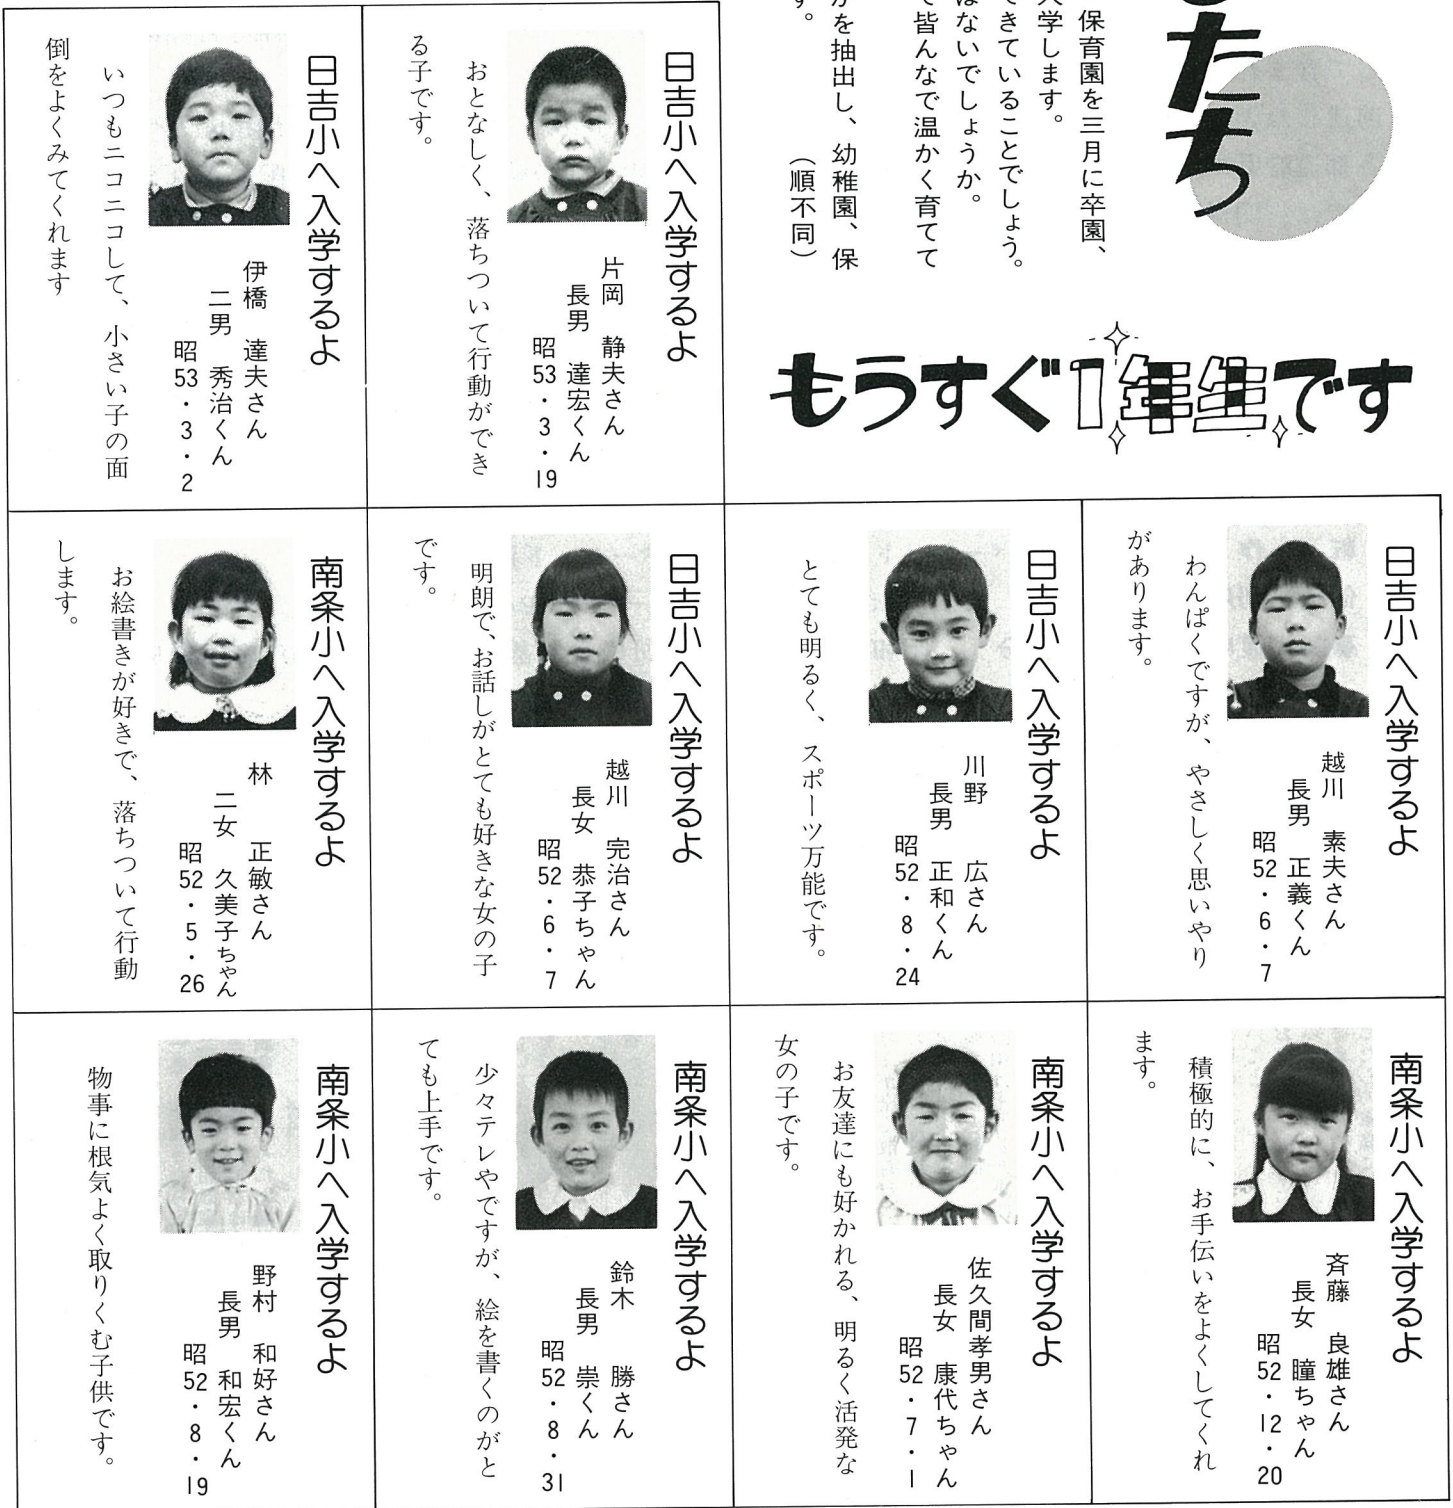 したち
保育園を三月に卒園、
入学します。
できていることでしょう。
はないでしょうか。
で皆んなで温かく育てて
かを抽出し、幼稚園、保
す。
（順不同）
もうすぐ1年生です
日吉小へ入学するよ
片岡　静夫さん
長男　達宏くん
昭53・3・19
おとなしく、落ちついて行動ができ
る子です。
日吉小へ入学するよ
伊橋　達夫さん
二男　秀治くん
昭53・3・2
いつもニコニコして、小さい子の面
倒をよくみてくれます
日吉小へ入学するよ
越川　素夫さん
長男　正義くん
昭52・6・7
わんぱくですが、やさしく思いやり
があります。
日吉小へ入学するよ
川野　広さん
長男　正和くん
昭52・8・24
とても明るく、スポーツ万能です。
日吉小へ入学するよ
越川　完治さん
長女　恭子ちゃん
昭52・6・7
明朗で、お話しがとても好きな女の子
です。
南条小へ入学するよ
林　正敏さん
二女　久美子ちゃん
昭52・5・26
お絵書きが好きで、落ちついて行動
します。
南条小へ入学するよ
斉藤　良雄さん
長女　瞳ちゃん
昭52・12・20
積極的に、お手伝いをよくしてくれ
ます。
南条小へ入学するよ
佐久間孝男さん
長女　康代ちゃん
昭52・7・1
お友達にも好かれる、明るく活発な
女の子です。
南条小へ入学するよ
鈴木　勝さん
長男　崇くん
昭52・8・31
少々テレやですが、絵を書くのがと
ても上手です。
南条小へ入学するよ
野村　和好さん
長男　和宏くん
昭52・8・19
物事に根気よく取りくむ子供です。